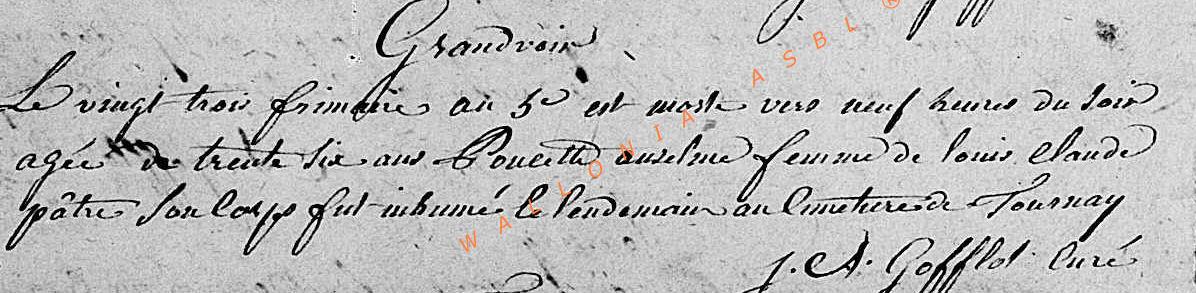 Grandvoir
Le vingt trois frimaire an 5e est morte vers neuf heures du soir
agée de trente six ans Poncette anselme femme de louis Claude
pâtre Son Corps fut inhumé le lendemain au Cimetiere de Tournay
J. A. Gofflot Curé
WALLONIA ASBL ®